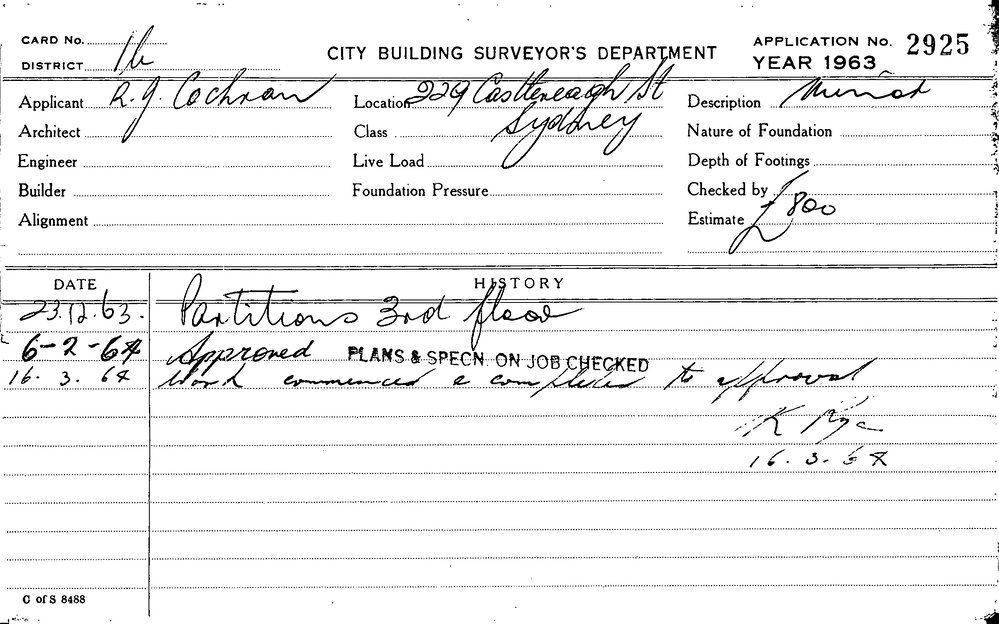 CARD No.
DISTRICT 1b
CITY BUILDING SURVEYOR'S DEPARTMENT
APPLICATION No. 2925
YEAR 1963
Applicant R. J. Cochran
Location 229 Castlereagh St
Description
Architect
Class Sydney
Nature of Foundation
Engineer
Live Load
Depth of Footings
Builder
Foundation Pressure
Checked by
Alignment
Estimate £800
DATE HISTORY
23.12.63. Partitions 3rd floor
6-2-64 Approved PLANS & SPECN. ON JOB CHECKED
16.3.64 Work commenced & completed to approval
K
16.3.64
C of S 8488